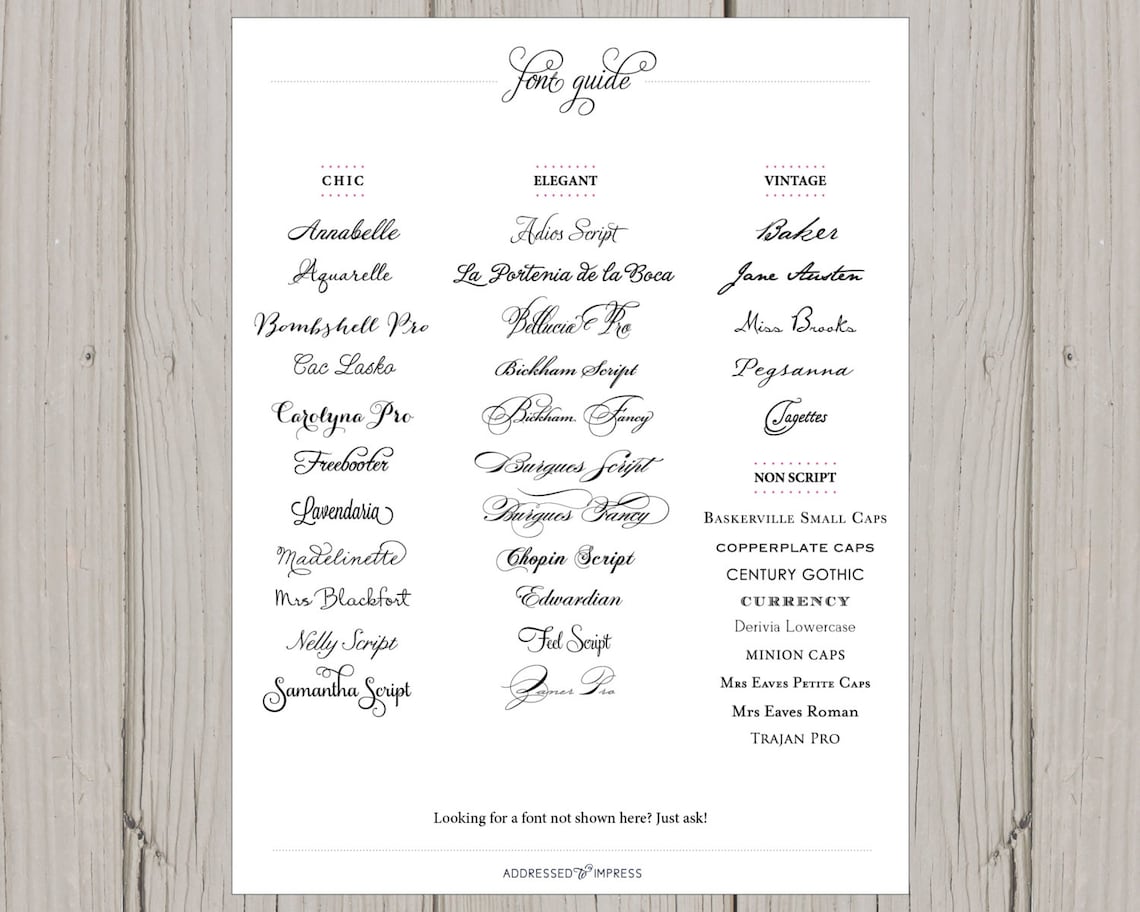 font guide
CHIC
Annabelle
Aquarelle
Bombshell Pro
Cac Lasko
Carolyna Pro
Freebooter
Lavendaria
Madelinette
Mrs Blackfort
Nelly Script
Samantha Script
ELEGANT
Adios Script
La Portenia de la Boca
Bellucia Pro
Bickham Script
Bickham Fancy
Burgues Script
Burgues Fancy
Chopin Script
Edwardian
Feel Script
Zaner Pro
VINTAGE
Baker
Jane Austen
Miss Brooks
Pegsanna
Tagettes
NON SCRIPT
Baskerville Small Caps
COPPERPLATE CAPS
CENTURY GOTHIC
CURRENCY
Derivia Lowercase
MINION CAPS
Mrs Eaves Petite Caps
Mrs Eaves Roman
Trajan Pro
Looking for a font not shown here? Just ask!
ADDRESSED to IMPRESS